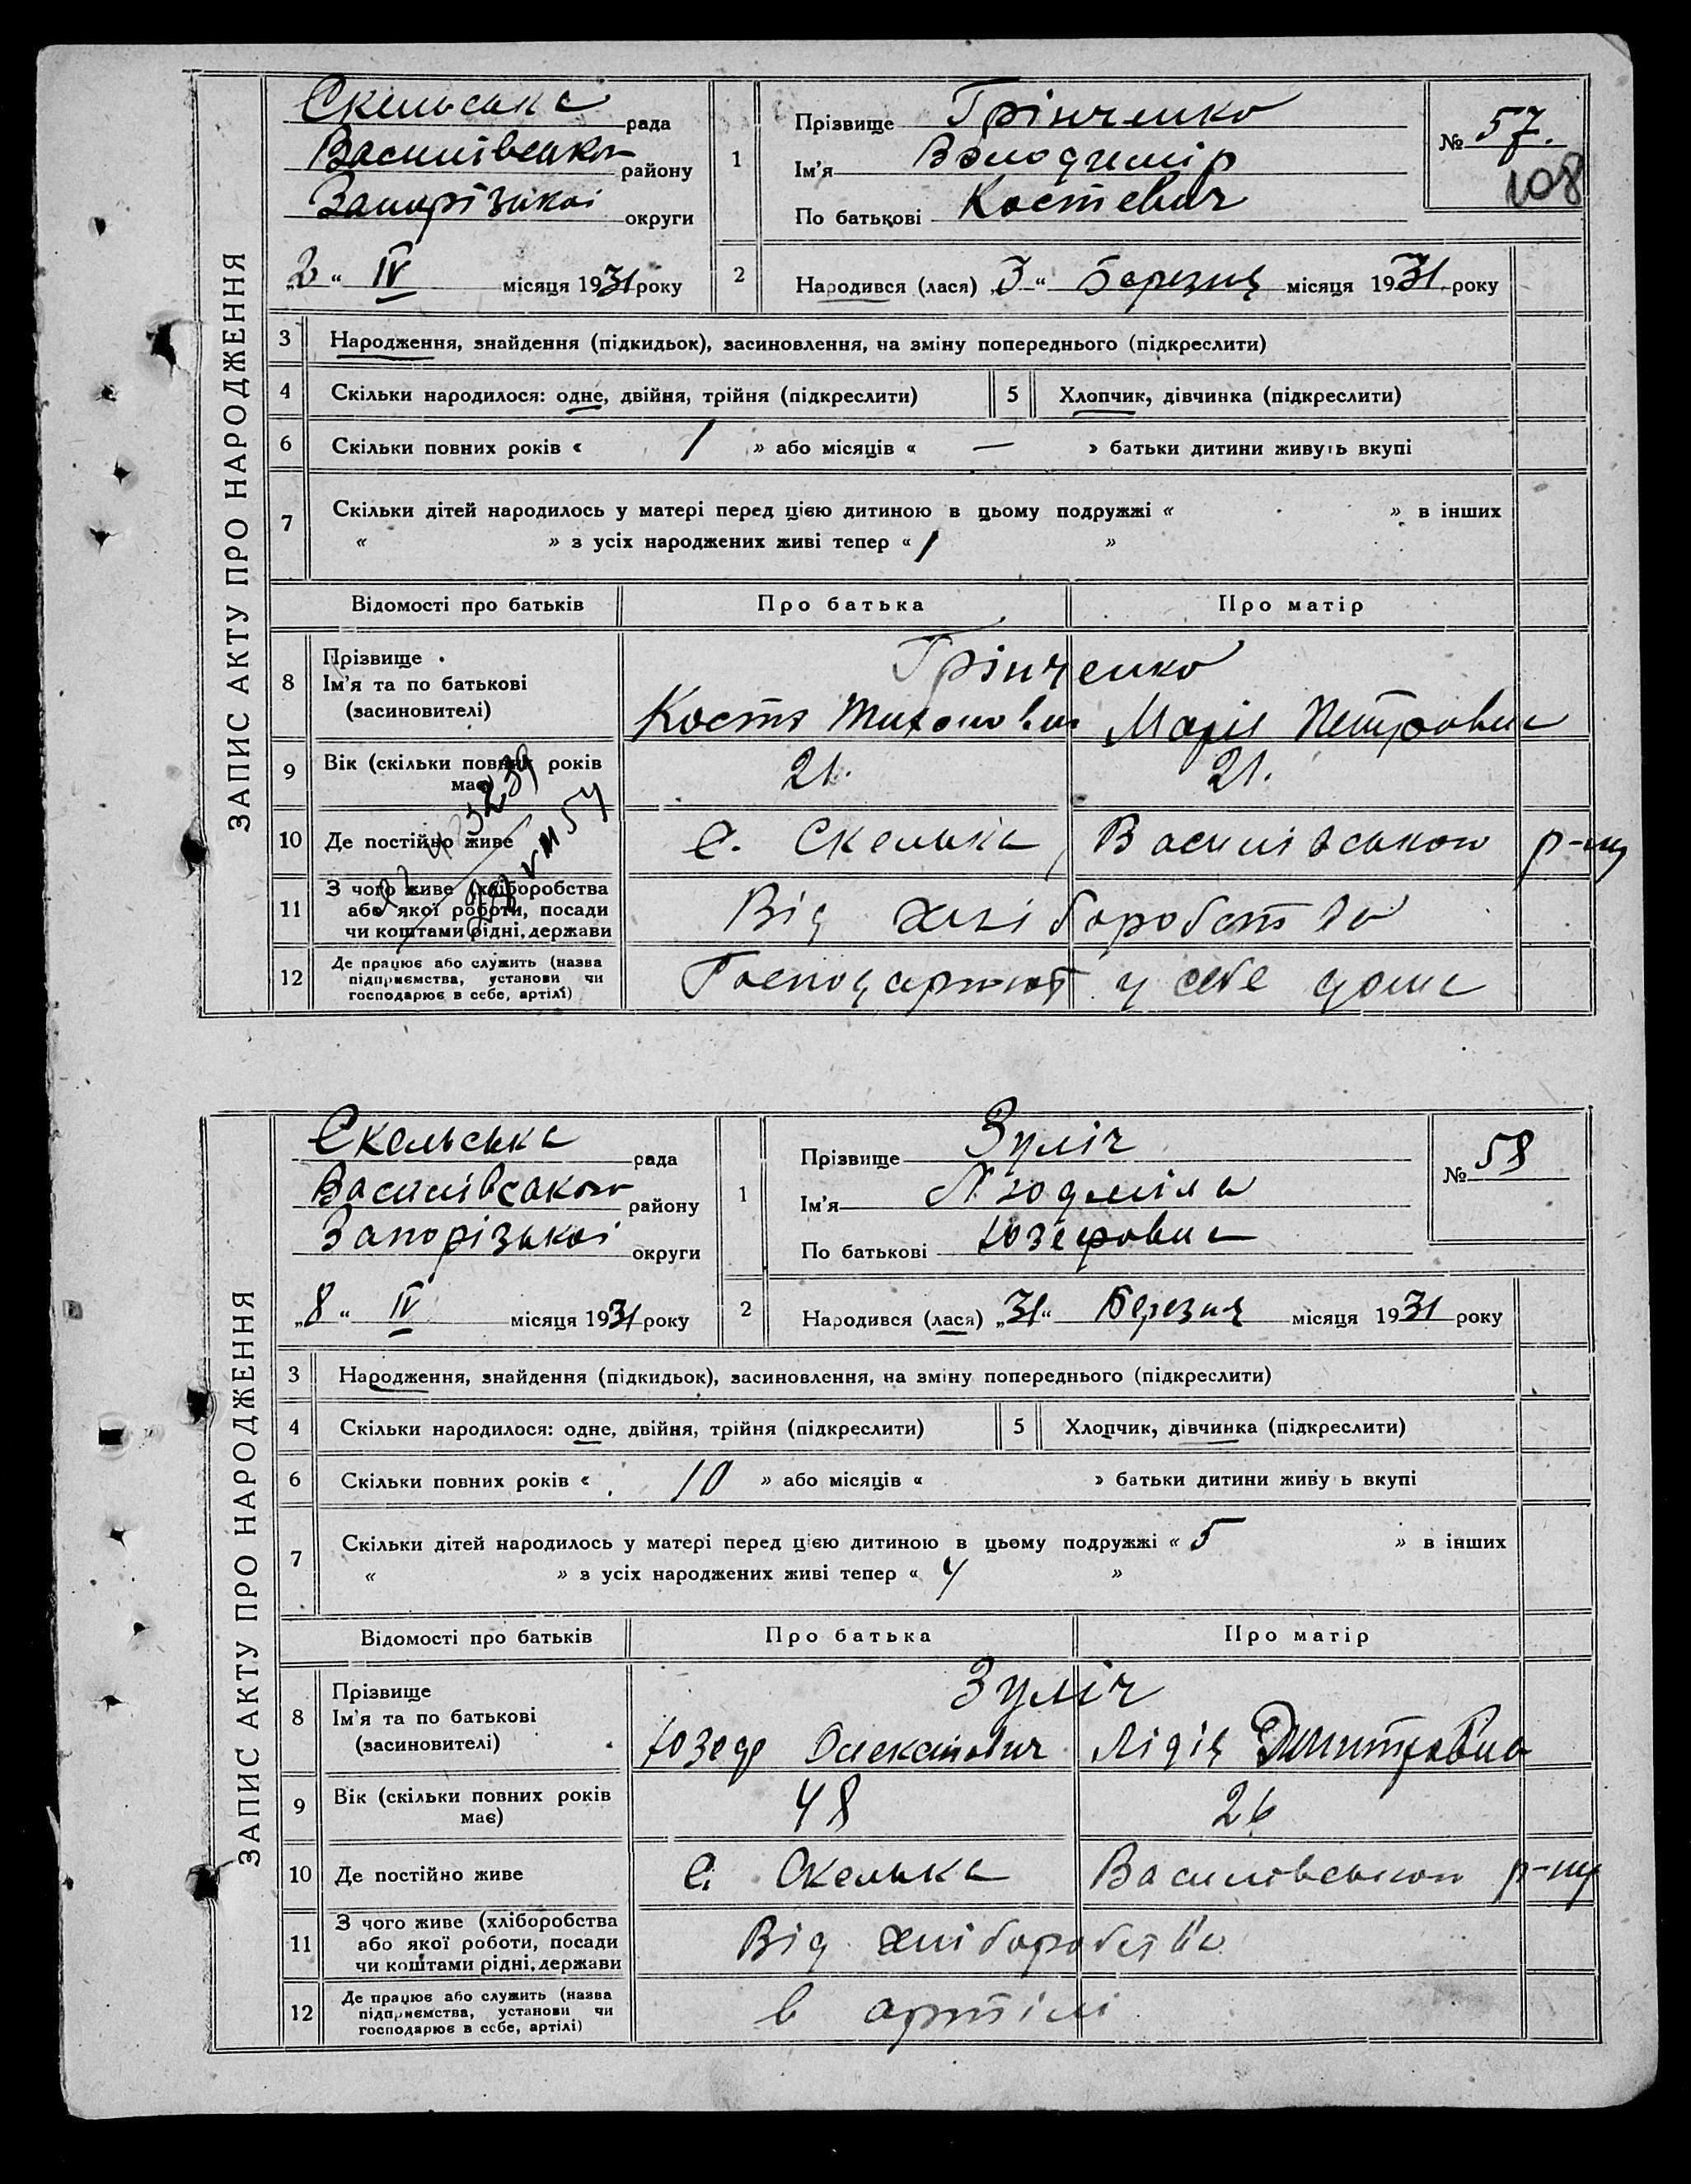 ЗАПИС АКТУ ПРО НАРОДЖЕННЯ
Скельська рада
Василівсько району
Запорізької округи
„2“ IV місяця 1931 року
1 Прізвище Грінченко
Ім'я Володимір
По батькові Костевич
№ 57.
108
2 Народився (лася) „3“ Березня місяця 1931 року
3 Народження, знайдення (підкидьок), засиновлення, на зміну попереднього (підкреслити)
4 Скільки народилося: одне, двійня, трійня (підкреслити) 5 Хлопчик, дівчинка (підкреслити)
6 Скільки повних років « 1 » або місяців « — » батьки дитини живуть вкупі
7 Скільки дітей народилось у матері перед цією дитиною в цьому подружжі « » в інших
« » з усіх народжених живі тепер « 1 »
Відомості про батьків Про батька Про матір
8 Прізвище Ім'я та по батькові (засиновителі) Грінченко
Костя Тихонович Марія Петровна
9 Вік (скільки повних років має) 21. 21.
10 Де постійно живе с. Скелька, Василівського р-ну
11 З чого живе (хліборобства або якої роботи, посади чи коштами рідні, держави Від хліборобства
12 Де працює або служить (назва підприємства, установи чи господарює в себе, артілі) Господарюют у себе дома
ЗАПИС АКТУ ПРО НАРОДЖЕННЯ
Скельська рада
Василівського району
Запорізької округи
„8“ IV місяця 1931 року
1 Прізвище Зуліч
Ім'я Людміла
По батькові Юзефовна
№ 58
2 Народився (лася) „31“ Березня місяця 1931 року
3 Народження, знайдення (підкидьок), засиновлення, на зміну попереднього (підкреслити)
4 Скільки народилося: одне, двійня, трійня (підкреслити) 5 Хлопчик, дівчинка (підкреслити)
6 Скільки повних років « 10 » або місяців « » батьки дитини живу ь вкупі
7 Скільки дітей народилось у матері перед цією дитиною в цьому подружжі « 5 » в інших
« » з усіх народжених живі тепер « 4 »
Відомості про батьків Про батька Про матір
8 Прізвище Ім'я та по батькові (засиновителі) Зуліч
Юзеф Лідія Дмитровна
9 Вік (скільки повних років має) 48 26
10 Де постійно живе с. Скелька Василівського р-ну
11 З чого живе (хліборобства або якої роботи, посади чи коштами рідні, держави Від хліборобства
12 Де працює або служить (назва підприємства, установи чи господарює в себе, артілі) в артілі